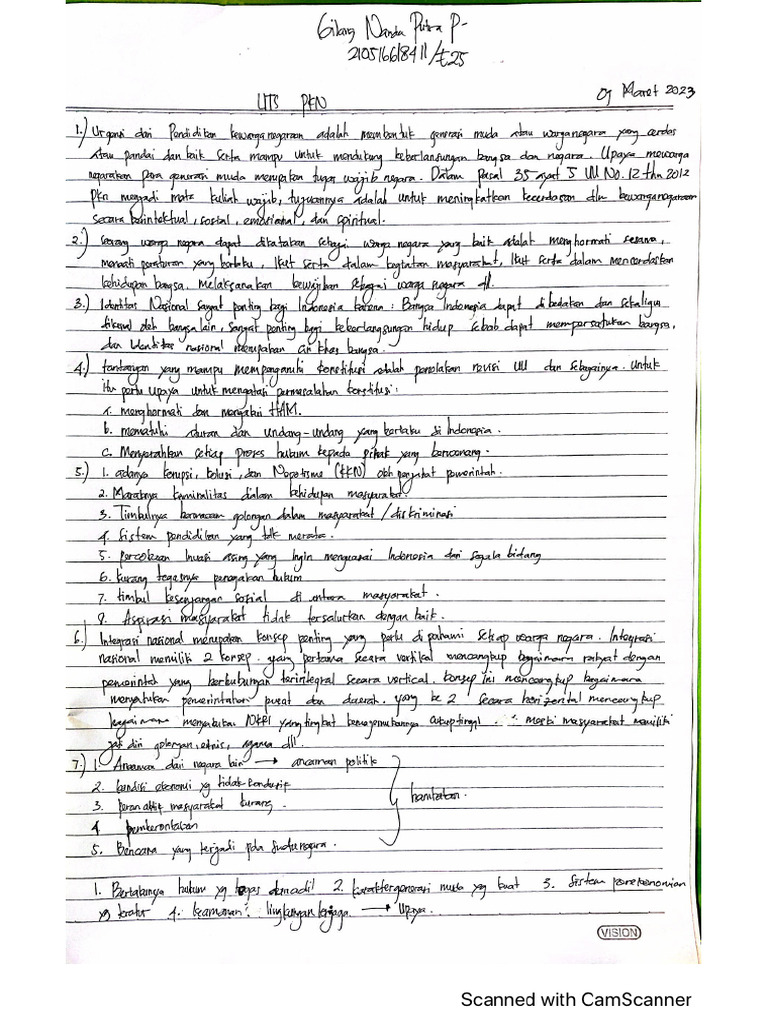 Gilang Nanda Putra P-
210516618411/E25
09 Maret 2023
UTS PKN
1.) Urgensi dari Pendidikan kewarganegaraan adalah membentuk generasi muda atau warganegara yang cerdas
atau pandai dan baik serta mampu untuk mendukung keberlansungan bangsa dan negara. Upaya mewarga
negarakan para generasi muda merupakan tugas wajib negara. Dalam pasal 35 ayat 5 UU No. 12 thn 2012
PKn menjadi mata kuliah wajib, tujuannya adalah untuk meningkatkan kecerdasan dlm kewarganegaraan
secara beintektual, sosial, emosional, dan spiritual.
2.) Seorang warga negara dapat dikatakan sebagai warga negara yang baik adalah menghormati sesama,
menaati peraturan yang berlaku, Ikut serta dalam kegiatan masyarakat, Ikut serta dalam mencerdaskan
kehidupan bangsa, melaksanakan kewajiban sebagai warga negara dll.
3.) Identitas Nasional sangat penting bagi Indonesia karena : Bangsa Indonesia dapat dibedakan dan sekaligus
dikenal oleh bangsa lain, sangat penting bagi keberlangsungan hidup sebab dapat mempersatukan bangsa,
dan Identitas nasional merupakan ciri khas bangsa.
4.) tantangan yang mampu mempengaruhi konstitusi adalah penolakan revisi UU dan sebagainya. Untuk
itu perlu upaya untuk mengatasi permasalahan konstitusi :
a. menghormati dan mengakui HAM.
b. mematuhi aturan dan undang-undang yang berlaku di Indonesia.
c. Menyerahkan setiap proses hukum kepada pihak yang berwenang.
5.) 1. adanya korupsi, kolusi, dan Nepotisme (KKN) oleh penjabat pemerintah.
2. Maraknya kriminalitas dialam kehidupan masyarakat.
3. Timbulnya bermacam golongan dalam masyarakat / diskriminasi
4. Sistem pendidikan yang tdk merata.
5. percobaan Invasi asing yang Ingin menguasai Indonesia dari segala bidang
6. kurang tegasnya penegakan hukum
7. timbul kesenjangan sosial di antara masyarakat.
8. Aspirasi masyarakat tidak tersalurkan dengan baik.
6.) Integrasi nasional merupakan konsep penting yang perlu dipahami setiap warga negara. Integrasi
nasional memiliki 2 konsep. yang pertama secara vertikal mencangkup bagaimana rakyat dengan
pemerintah yang berhubungan terintegral secara vertical. konsep ini mencangkup bagaimana
menyatukan pemerintahan pusat dan daerah. yang ke 2 secara horizontal mencangkup
bagaimana menyatukan NKRI yang tingkat kemajemukannya cukup tinggi. meski masyarakat memiliki
jati diri golongan, etnis, agama dll.
7.) 1. Ancaman dari negara lain → ancaman politik
2. kondisi ekonomi yg tidak kondusif
3. peran aktif masyarakat kurang.
4 pemberontakan
5. Bencana yang terjadi pda suatu negara.
hambatan.
1. Bertakunya hukum yg tegas dan adil 2. karakter generasi muda yg kuat 3. Sistem perekonomian
yg teratur 4. keamanan² lingkungan terjaga → Upaya.
VISION
Scanned with CamScanner